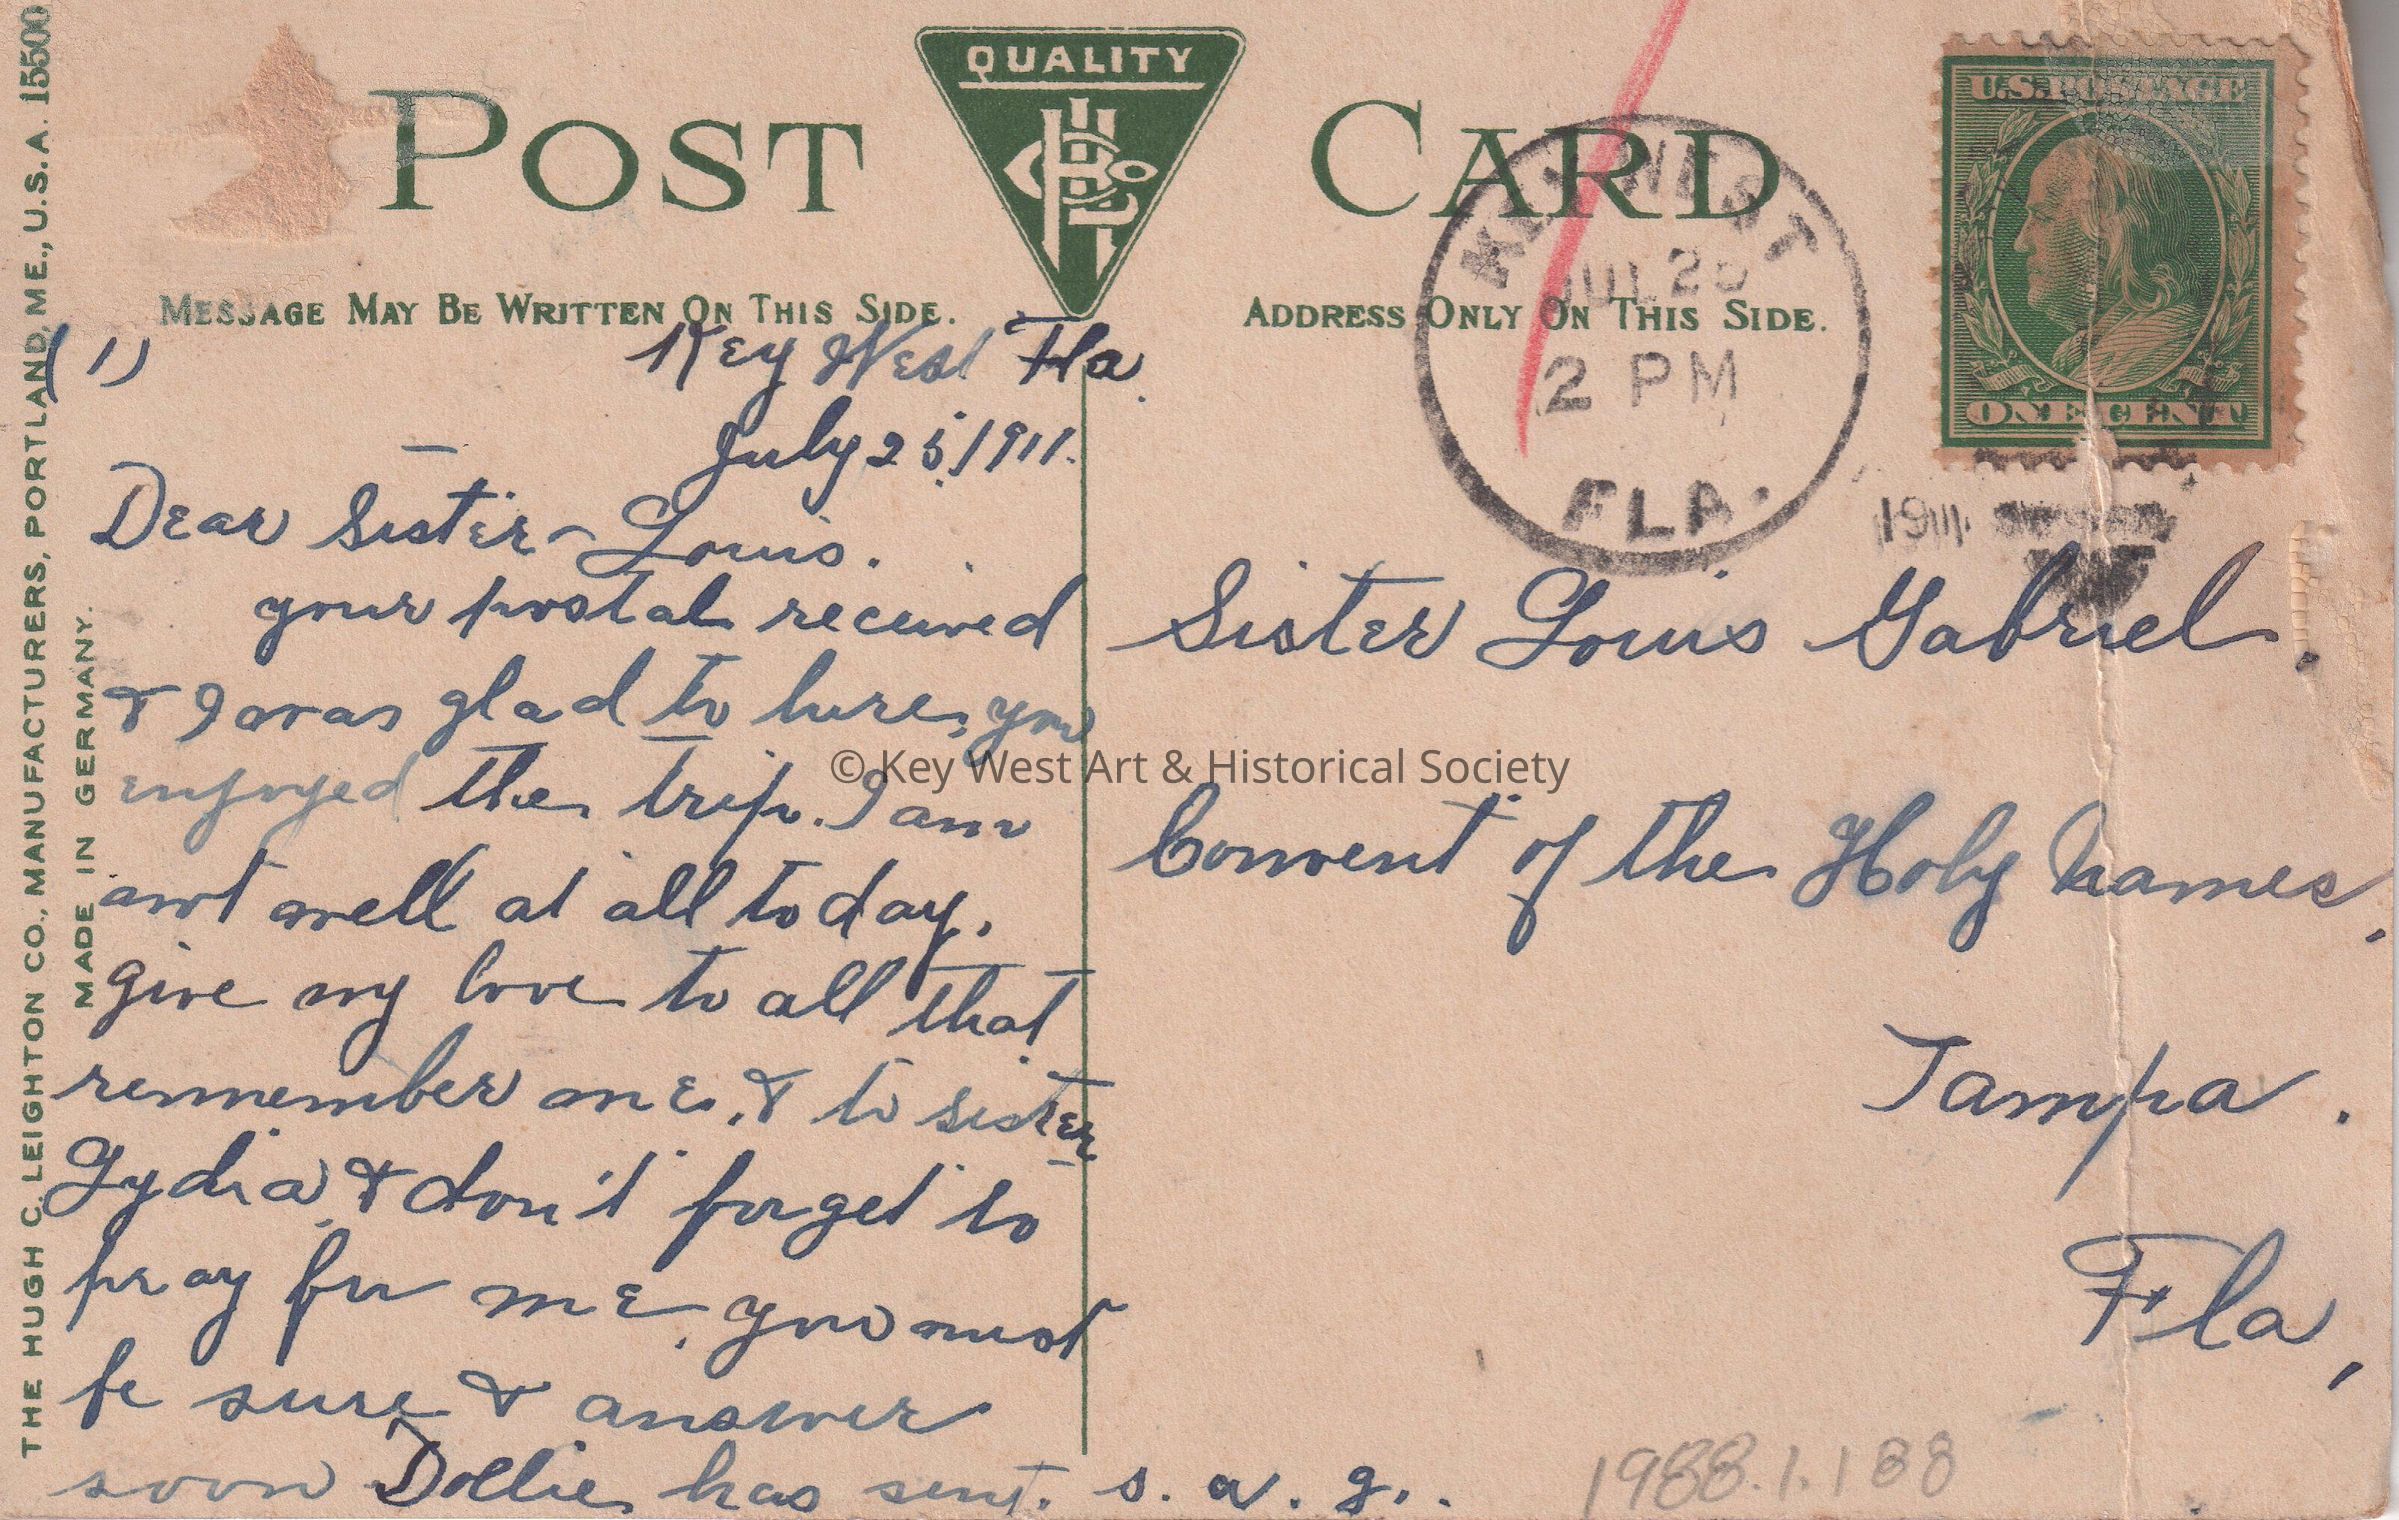 THE HUGH C. LEIGHTON CO., MANUFACTURERS, PORTLAND, ME., U.S.A. 15500
MADE IN GERMANY.
POST CARD
QUALITY
MESSAGE MAY BE WRITTEN ON THIS SIDE.
ADDRESS ONLY ON THIS SIDE.
U.S. POSTAGE
ONE CENT
KEY WEST
JUL 25
2 PM
FLA.
1911
(1)
Key West Fla.
July 25, 1911.
Dear Sister Louis.
your postal received
& I was glad to hure you
enjoyed the trip. I am
ant well at all to day.
give my love to all that
remember me. & to sister
Lydia & don't forget to
pray for me. you must
be sure & answer
soon Dollie has sent. s. a. g..
Sister Louis Gabriel.
Convent of the Holy Names,
Tampa.
Fla,
1988.1.188
© Key West Art & Historical Society